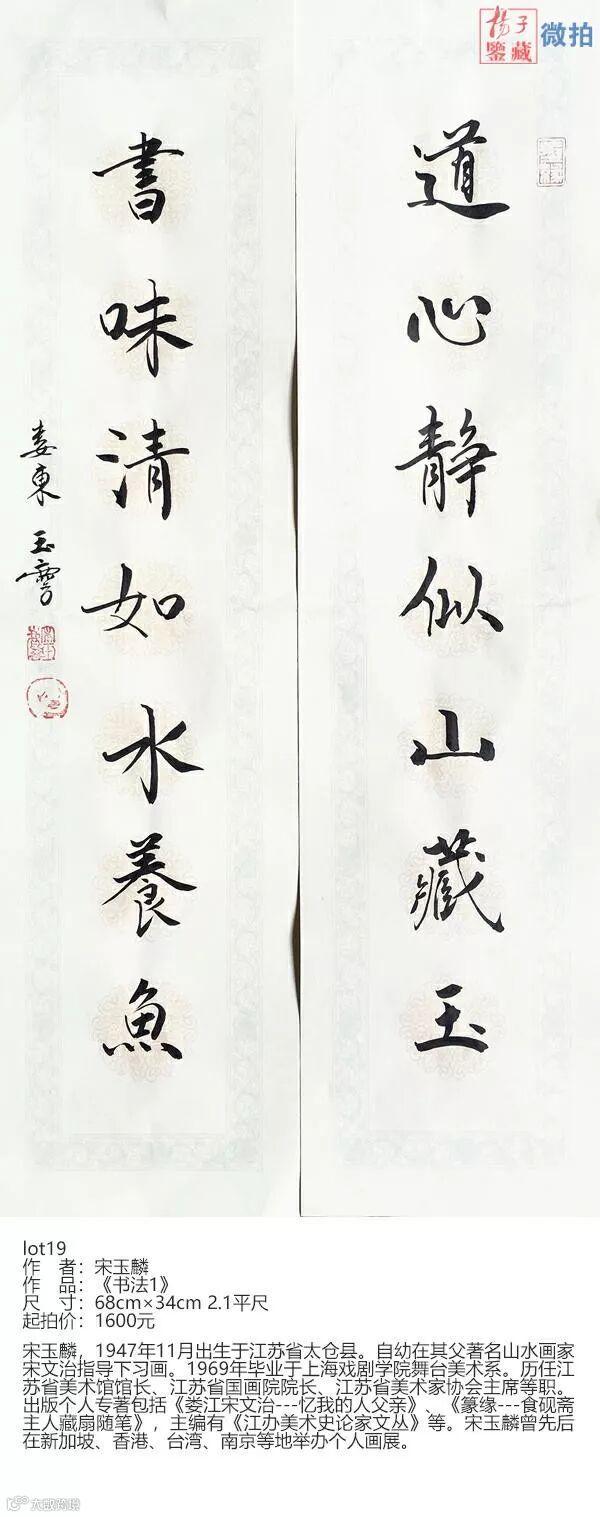 揚子
鑒藏
微拍
道心靜似山藏玉
書味清如水養魚
婁東玉
lot19
作　者：宋玉麟
作　品：《书法1》
尺　寸：68cm×34cm 2.1平尺
起拍价：1600元
宋玉麟，1947年11月出生于江苏省太仓县。自幼在其父著名山水画家
宋文治指导下习画。1969年毕业于上海戏剧学院舞台美术系。历任江
苏省美术馆馆长、江苏省国画院院长、江苏省美术家协会主席等职。
出版个人专著包括《娄江宋文治---忆我的人父亲》、《篆缘---食砚斋
主人藏扇随笔》，主编有《江办美术史论家文丛》等。宋玉麟曾先后
在新加坡、香港、台湾、南京等地举办个人画展。